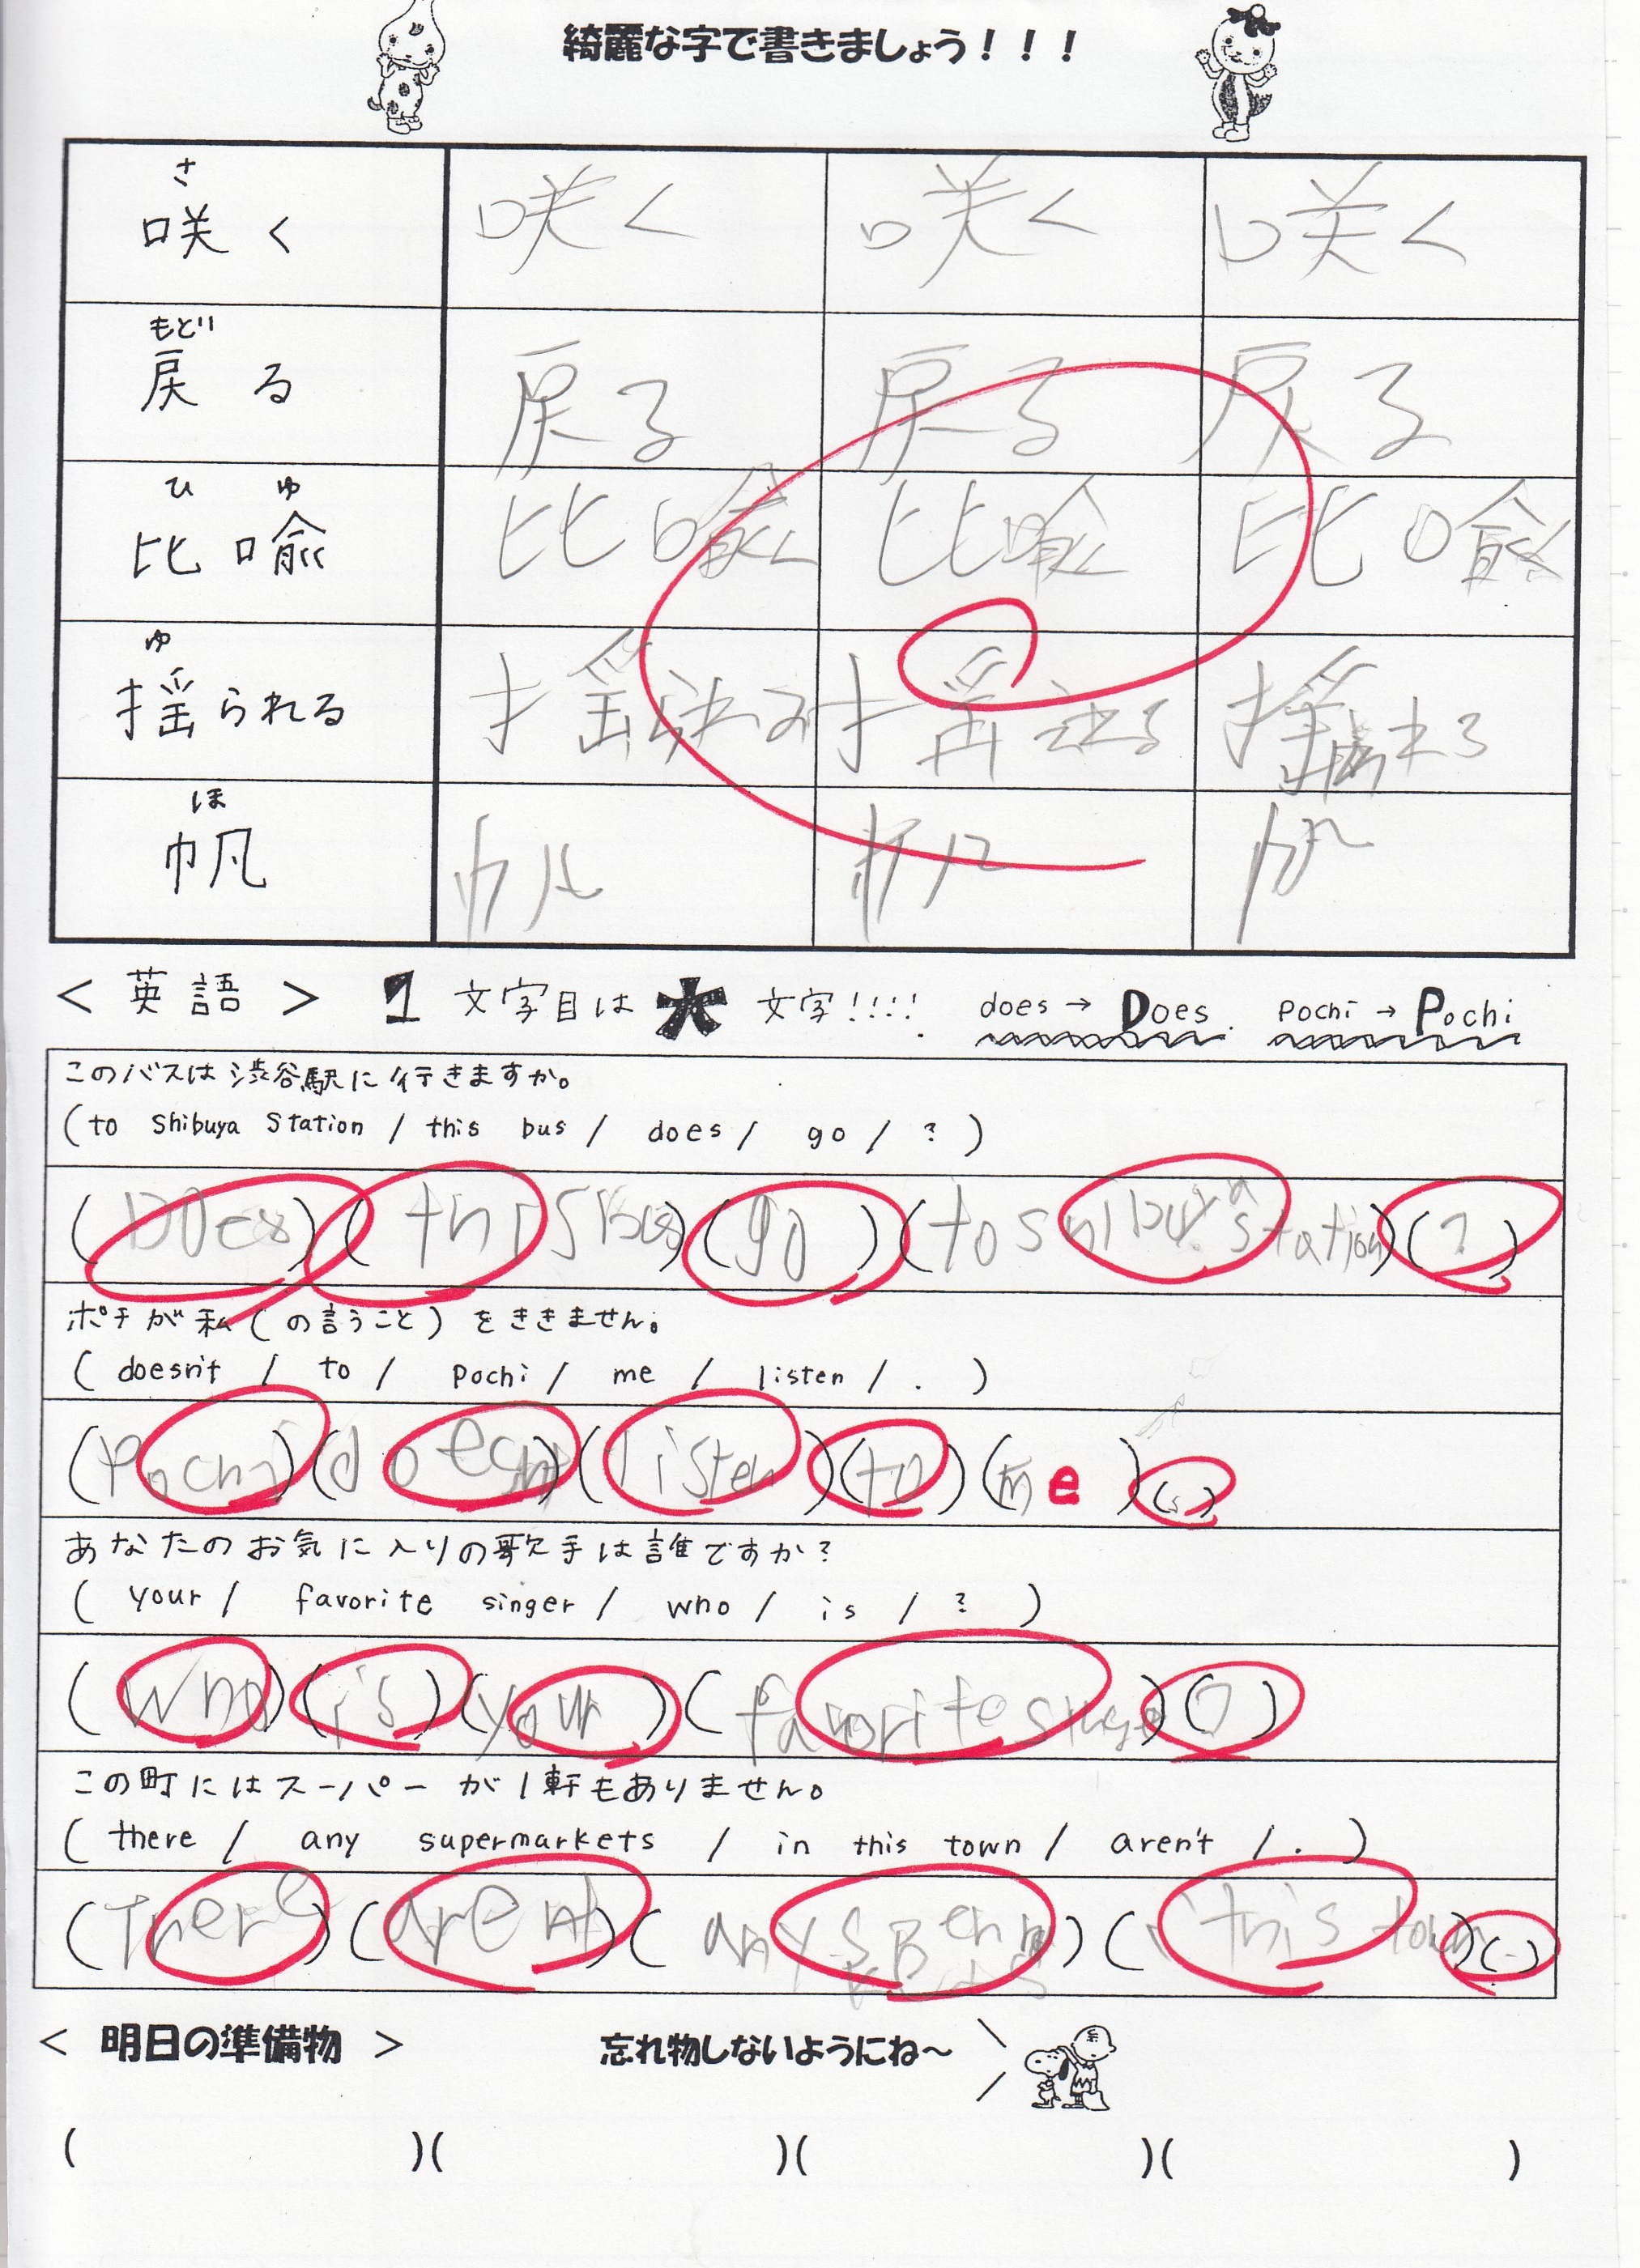 綺麗な字で書きましょう！！！
さ
咲く 咲く 咲く 咲く
もどる
戻る 戻る 戻る 戻る
ひ ゆ
比喩 比喩 比喩 比喩
ゆ
揺られる 揺られる 揺られる 揺られる
ほ
帆 帆 帆 帆
＜英語＞ 1文字目は大文字!!!! does → Does. pochi → Pochi
このバスは渋谷駅に行きますか。
(to Shibuya Station / this bus / does / go / ? )
(Does) (this bus) (go) (to shibuya station) (?)
ポチが私(の言うこと)をききません。
( doesn't / to / pochi / me / listen / . )
(Pochi) (doesn't) (listen) (to) (me) (.)
あなたのお気に入りの歌手は誰ですか?
( your / favorite singer / who / is / ? )
(Who) (is) (your) (favorite singer) (?)
この町にはスーパーが1軒もありません。
( there / any supermarkets / in this town / aren't / . )
(There) (arent) (any) (this town) (.)
＜ 明日の準備物 ＞ 忘れ物しないようにね〜
( )( )( )( )